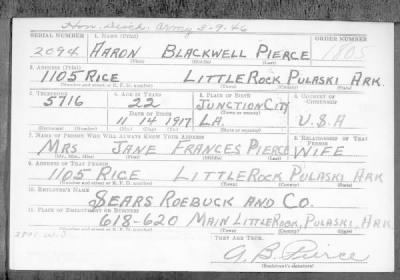 Hon. Disch. Army 8-9-46
SERIAL NUMBER 1. NAME (Print) ORDER NUMBER
2094 AARON BLACKWELL PIERCE 1805
(First) (Middle) (Last)
2. ADDRESS (Print)
1105 RICE LITTLE ROCK PULASKI ARK.
(Number and street or R. F. D. number) (Town) (County) (State)
3. TELEPHONE 4. AGE IN YEARS 5. PLACE OF BIRTH 6. COUNTRY OF CITIZENSHIP
5716 22 JUNCTION CITY
DATE OF BIRTH (Town or county)
11 14 1917 LA. U.S.A
(Mo.) (Day) (Yr.) (State or country)
7. NAME OF PERSON WHO WILL ALWAYS KNOW YOUR ADDRESS 8. RELATIONSHIP OF THAT PERSON
MRS JANE FRANCES PIERCE WIFE
(Mr., Mrs., Miss) (First) (Middle) (Last)
9. ADDRESS OF THAT PERSON
1105 RICE LITTLE ROCK PULASKI ARK
(Number and street or R. F. D. number) (Town) (County) (State)
10. EMPLOYER'S NAME
SEARS ROEBUCK AND CO.
11. PLACE OF EMPLOYMENT OR BUSINESS
618-620 MAIN LITTLE ROCK, PULASKI, ARK
(Number and street or R. F. D. number) (Town) (County) (State)
THEY ARE TRUE.
A. B. Pierce
(Registrant's signature)